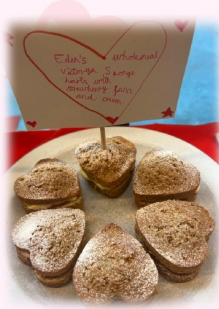 Eden's wholemeal
Victoria Sponge
hearts with
strawberry jam
and cream